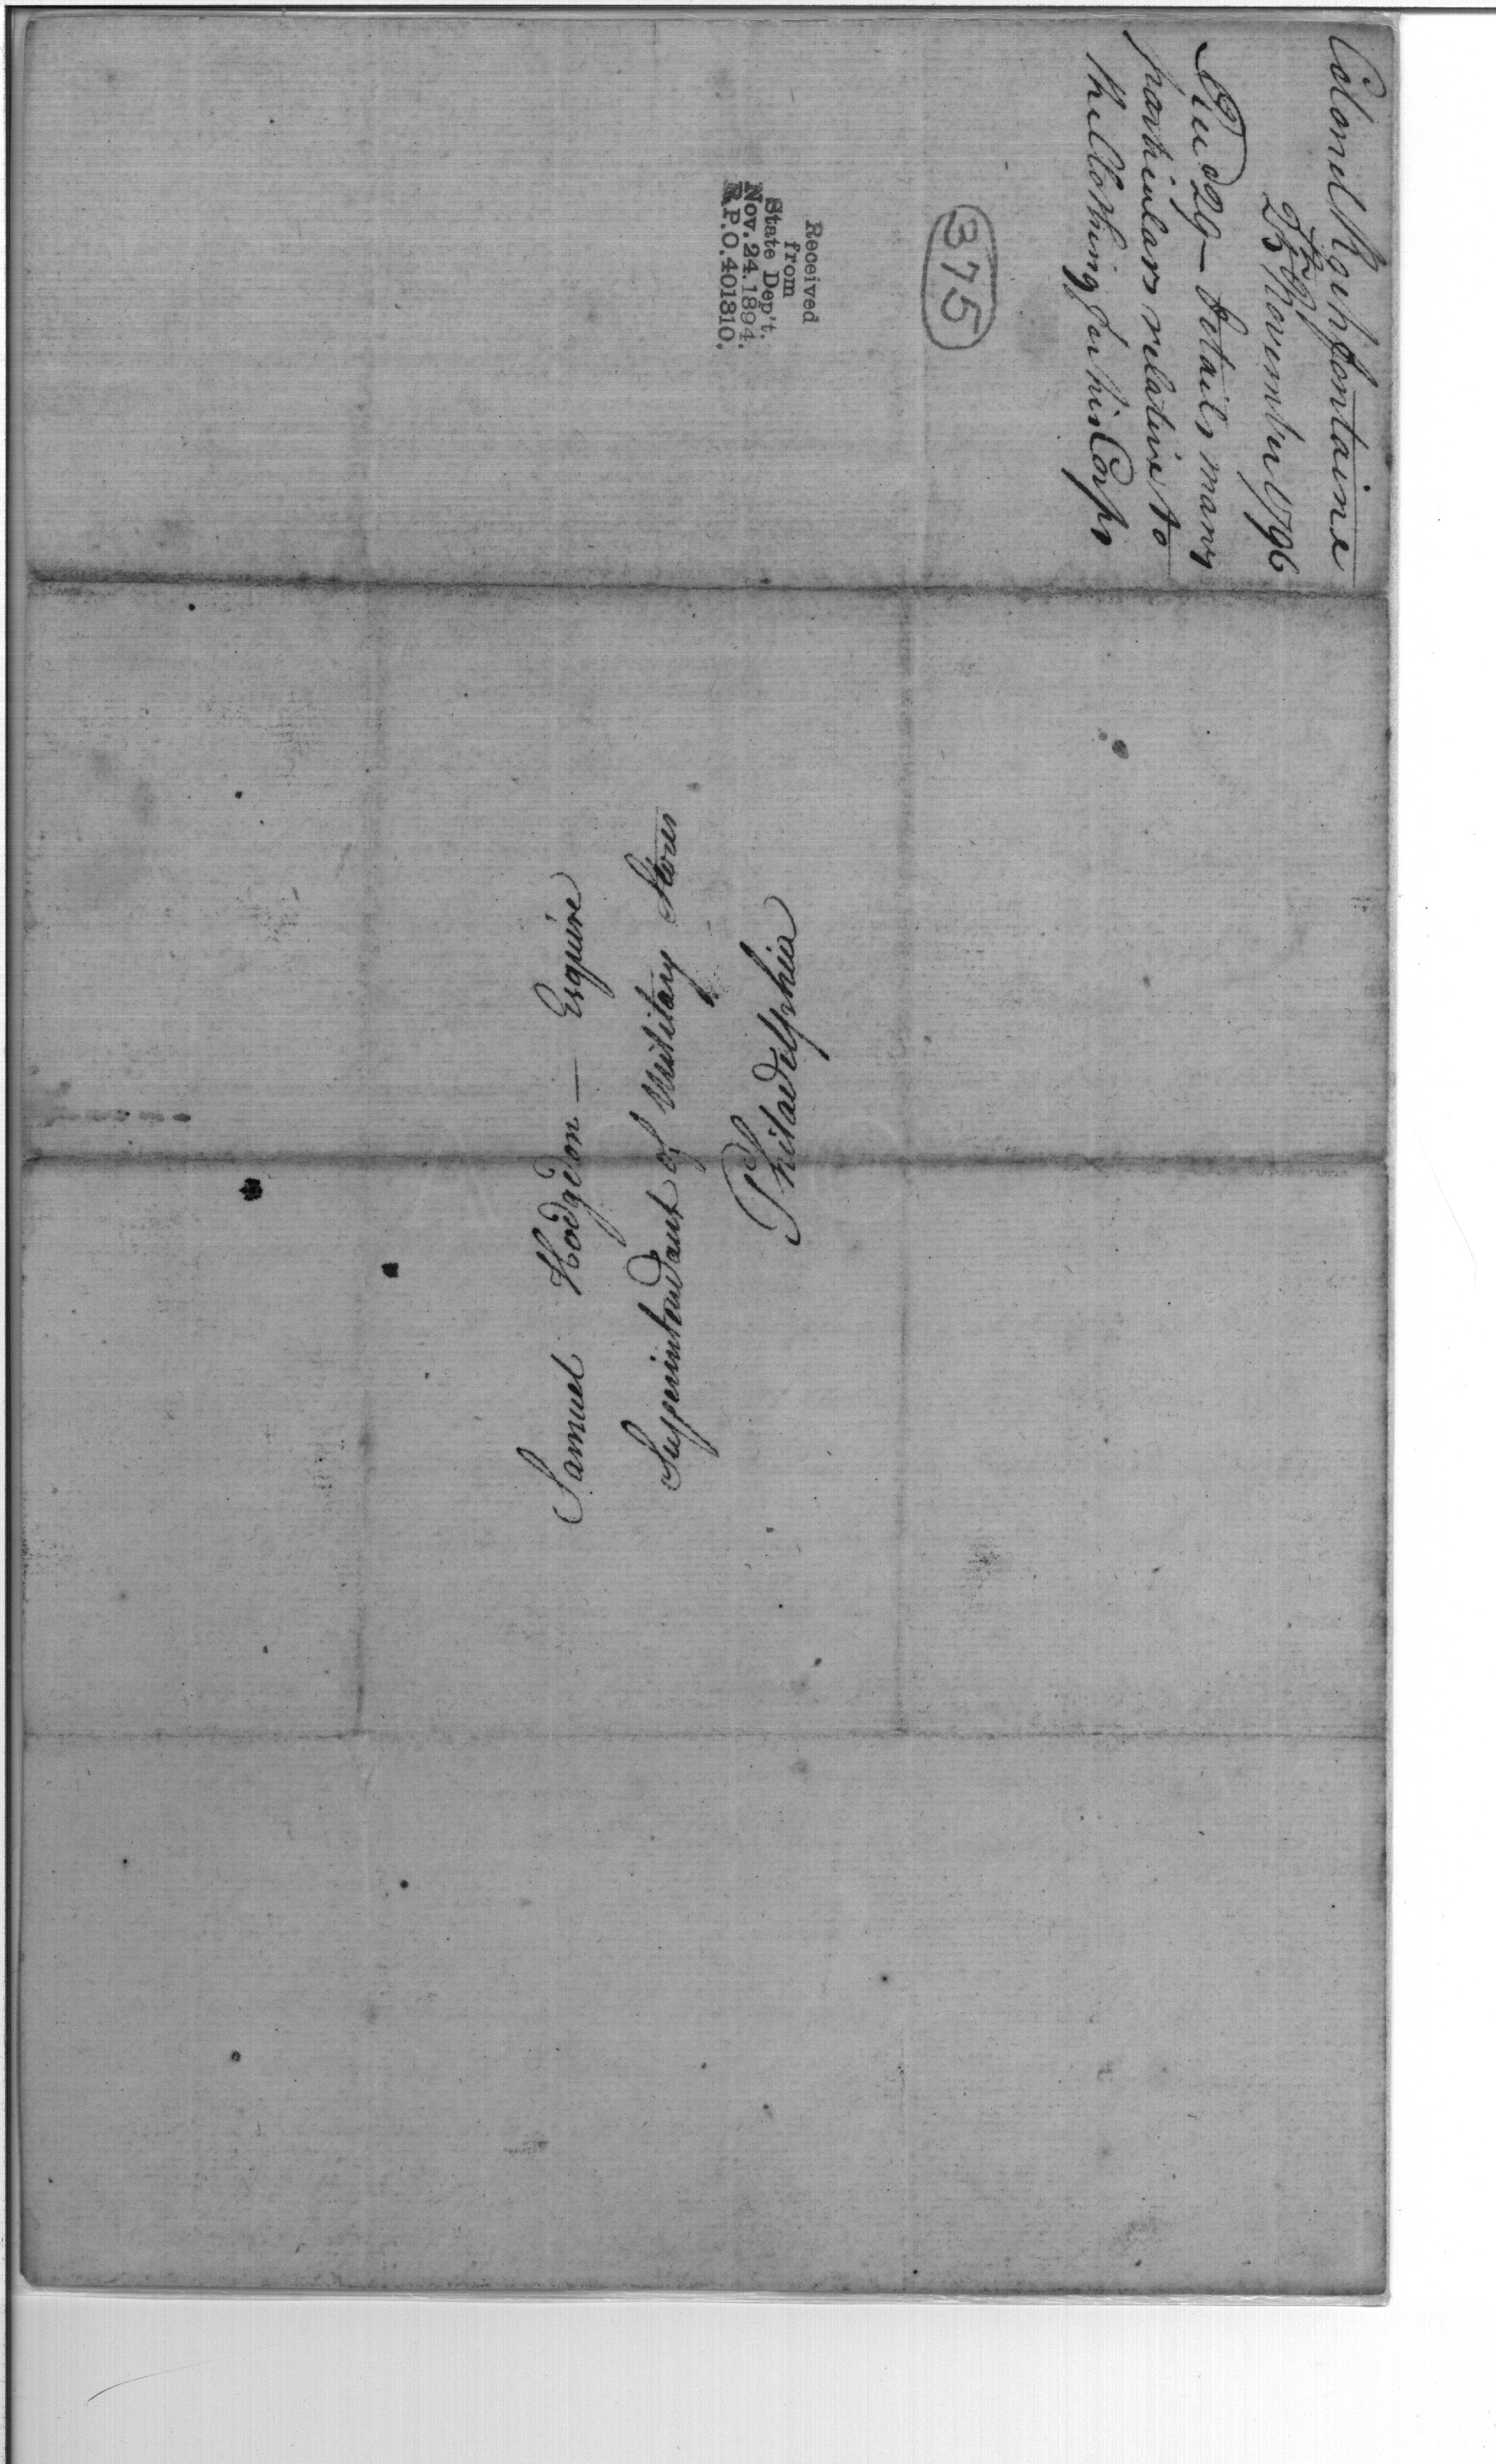 Colonel Rochfontaine
25th November 1796
Rec'd 29 — details many
particulars relative to
the Clothing for his Corps
375
Received
from
State Dep't.
Nov. 24. 1894.
R.P.O. 401310.
Samuel Hodgdon — Esquire
Superintendant of Military Stores
Philadelphia